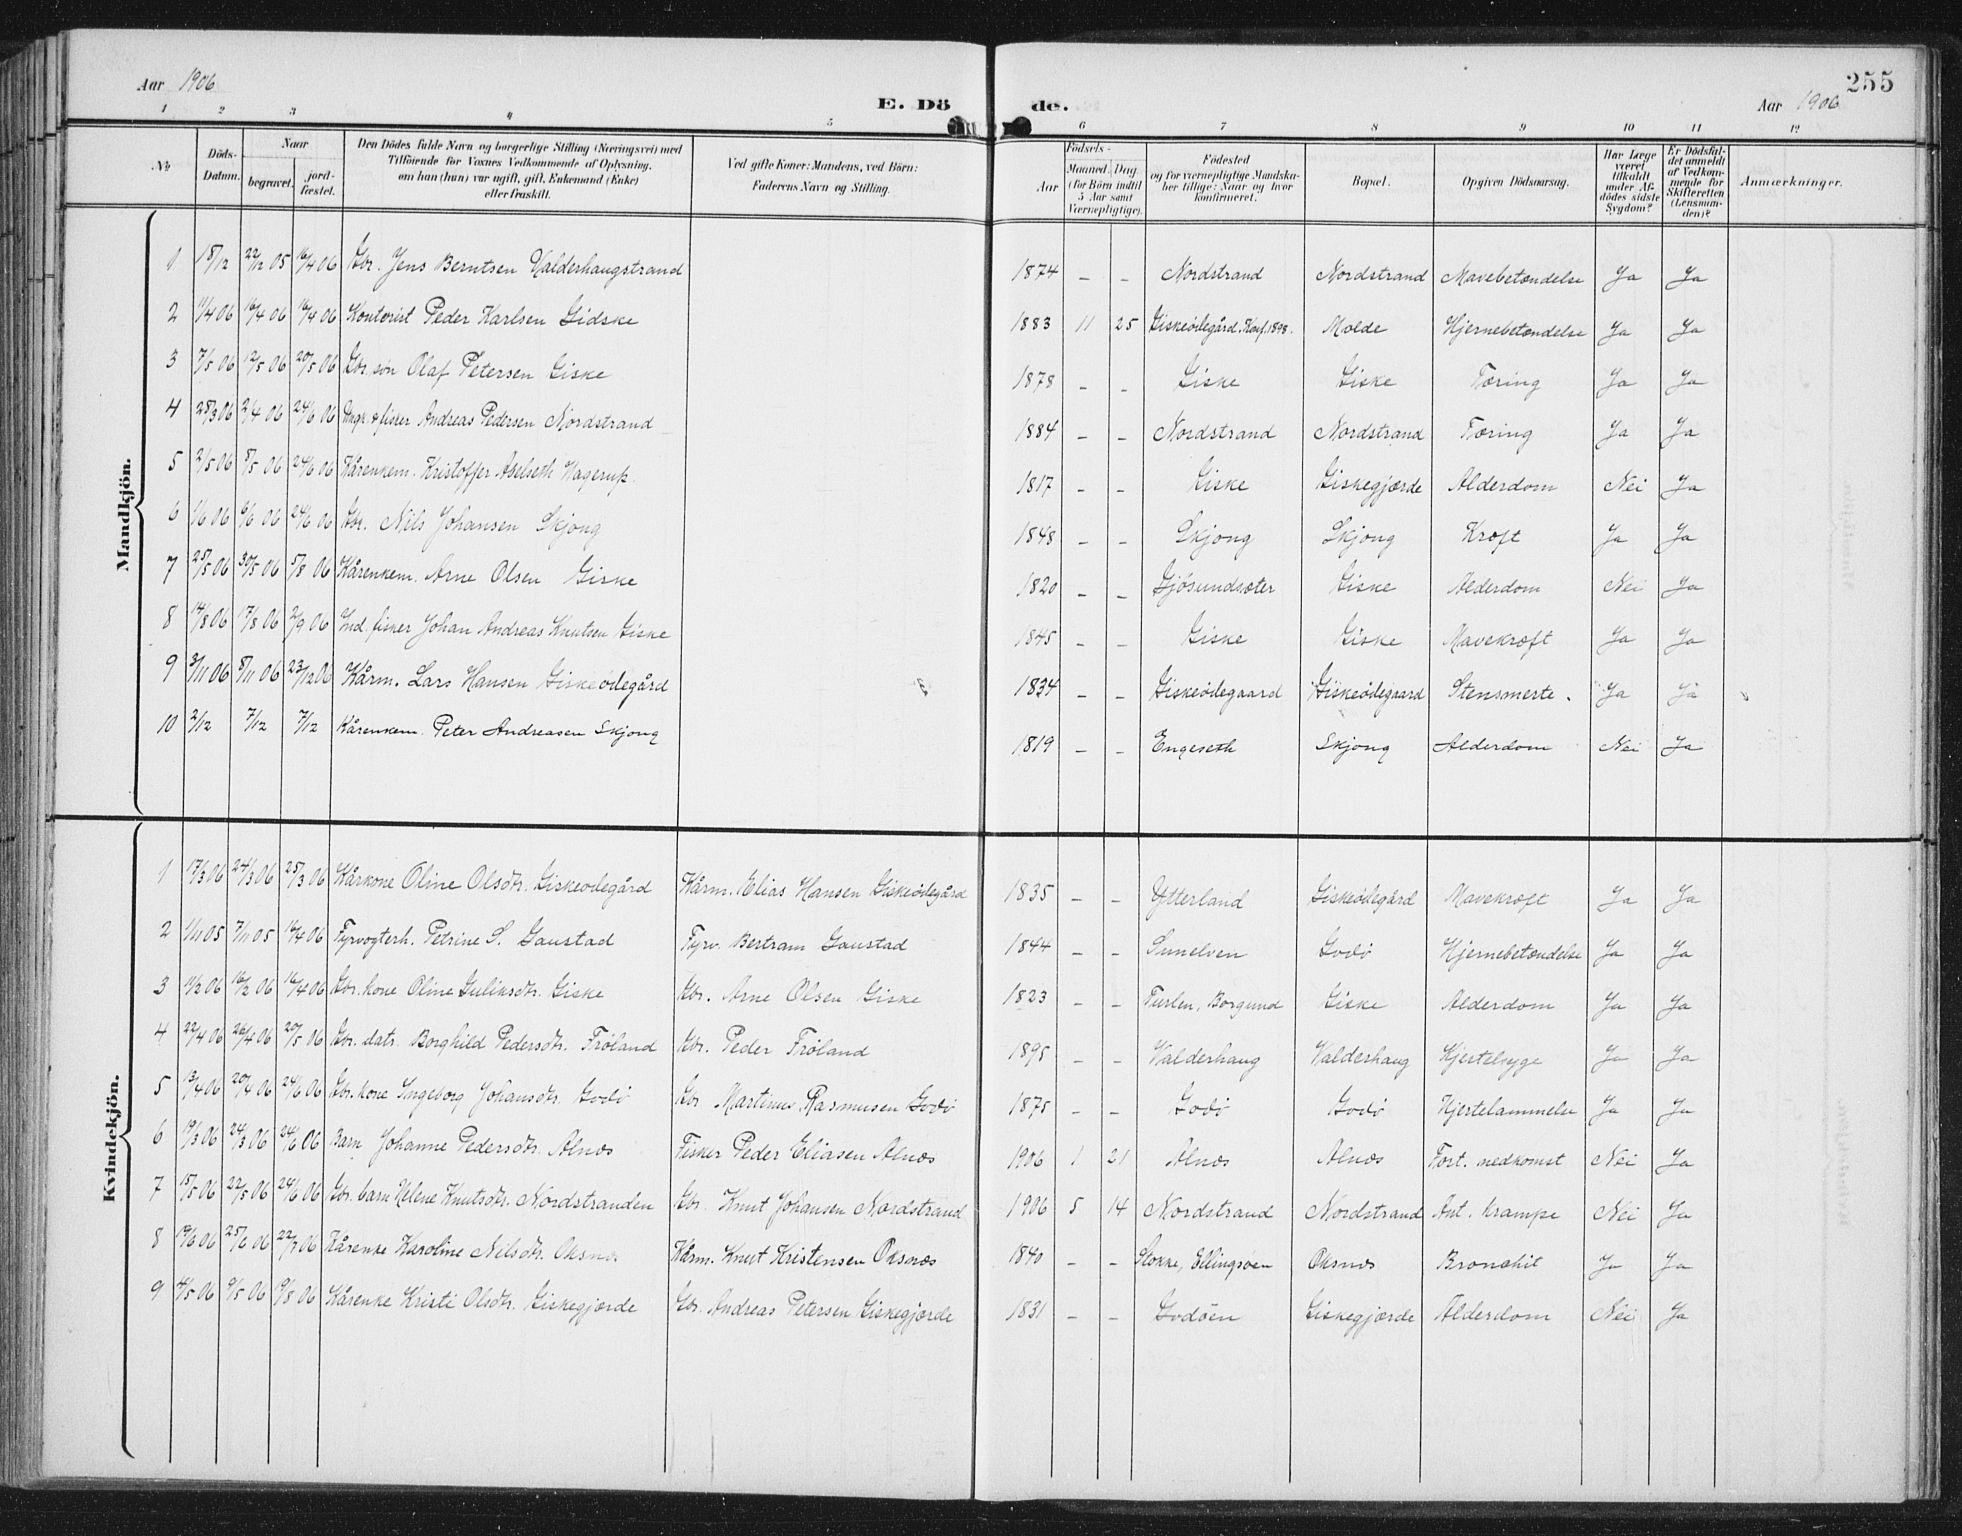 Aar 1906
E. Dö
de.
Aar 1906
255
1 2 3 4 5 6 7 8 9 10 11 12
No Döds-Datum. Naar begravet. jordfæstet. Den Dödes fulde Navn og borgerlige Stilling (Næringsvei) med Tilföiende for Voxnes Vedkommende af Oplysning, om han (hun) var ugift, gift, Enkemand (Enke) eller fraskilt. Ved gifte Koner: Mandens, ved Börn: Faderens Navn og Stilling. Födsels- Aar Maaned. Dag (for Börn indtil 5 Aar samt Værnepligtige). Födested og for værnepligtige Mandskaber tillige: Naar og hvor konfirmeret. Bopæl. Opgiven Dödsaarsag. Har Læge været tilkaldt under Afdödes sidste Sygdom? Er Dödsfaldet anmeldt af Vedkommende for Skifteretten (Lensmanden)? Anmærkninger.
Mandkjön.
1 18/12 22/12 05 16/4 06 Gbr. Jens Berntsen Valderhaugstrand 1874 - - Nordstrand Nordstrand Mavebetændelse Ja Ja
2 11/4 06 16/4 06 16/4 06 Kontorist Peder Karlsen Gidske 1883 11 25 Giskeödegård. Konf. 1898. Molde Hjernebetændelse Ja Ja
3 7/5 06 12/5 06 20/5 06 Gbr. søn Olaf Petersen Giske 1878 - - Giske Giske Tæring Ja Ja
4 28/3 06 2/4 06 24/6 06 Ungk. & fisker Andreas Pedersen Nordstrand 1884 - - Nordstrand Nordstrand Tæring Ja Ja
5 2/5 06 8/5 06 24/6 06 Kårenkem. Kristoffer Abelseth Hagerup. 1817 - - Giske Giskegjærde Alderdom Nei Ja
6 1/6 06 6/6 06 24/6 06 Gbr. Nils Johansen Skjong 1848 - - Skjong Skjong Kræft Ja Ja
7 25/5 06 30/5 06 5/8 06 Kårenkem. Arne Olsen Giske 1820 - - Gjøsundsæter Giske Alderdom Nei Ja
8 14/8 06 17/8 06 2/9 06 Ind. fisker Johan Andreas Knutsen Giske 1845 - - Giske Giske Mavekræft Ja Ja
9 3/11 06 8/11 06 23/12 06 Kårm. Lars Hansen Giskeödegård 1834 - - Giskeödegaard Giskeödegaard Stensmerte. Ja Ja
10 2/12 7/12 7/12 Kårenkem. Peter Andreasen Skjong 1819 - - Engeseth Skjong Alderdom Nei Ja
Kvindekjön.
1 17/3 06 24/3 06 25/3 06 Kårkone Oline Olsdtr. Giskeödegård Kårm. Elias Hansen Giskeödegård 1835 - - Ytterland Giskeödegård Mavekræft Ja Ja
2 1/11 05 7/11 05 16/4 06 Fyrvogterh. Petrine S. Gaustad Fyrv. Bertram Gaustad 1844 - - Sunelven Godø Hjernebetændelse Ja Ja
3 11/2 06 16/2 06 16/4 06 Gbr. kone Oline Guliksdtr. Giske Gbr. Arne Olsen Giske 1823 - - Turlen, Borgund Giske Alderdom Ja Ja
4 22/4 06 26/4 06 20/5 06 Gbr. datr. Borghild Pedersdtr. Frøland Gbr. Peder Frøland 1895 - - Valderhaug Valderhaug Hjertesyge Ja Ja
5 13/4 06 20/4 06 24/6 06 Gbr. kone Ingeborg Johansdtr. Godø Gbr Martinus Rasmusen Godø 1875 - - Godø Godø Hjertelammelse Ja Ja
6 19/3 06 24/3 06 24/6 06 Barn Johanne Pedersdtr. Alnæs Fisker Peder Eliasen Alnæs 1906 1 21 Alnæs Alnæs Fort. nedkomst Nei Ja
7 15/5 06 22/5 06 24/6 06 Gbr. barn Helene Knutsdtr. Nordstranden Gbr. Knut Johansen Nordstrand 1906 5 14 Nordstrand Nordstrand Ant. krampe Nei Ja
8 19/6 06 25/6 06 22/7 06 Kårenke Karoline Nilsdtr. Oksnæs Kårm. Knut Kristensen Oksnæs 1840 - - Stokke, Ellingsøen Oksnæs Bronchit Ja Ja
9 4/5 06 9/5 06 19/8 06 Kårenke Kristi Olsdtr. Giskegjærde Gbr. Andreas Petersen Giskegjærde 1831 - - Godøen Giskegjærde Alderdom Nei Ja